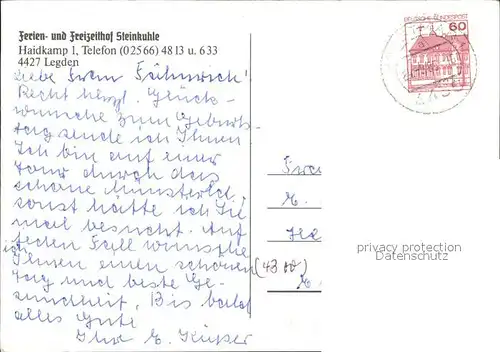 Ferien- und Freizeithof Steinkuhle
Haidkamp 1, Telefon (02566) 4813 u. 633
4427 Legden
Liebe Frau Fähnrich!
Recht herzl. Glück-
wünsche zum Geburts-
tag sende ich Ihnen
Ich bin auf einer
Tour durch das
schöne Münsterld.,
sonst hätte ich Sie
mal besucht. Auf
jeden Fall wünsche
ich
Ihnen einen schönen
Tag und beste Ge-
sundheit. Bis bald
alles Gute
Ihr E.
DEUTSCHE BUNDESPOST
60
Frau
E.
(43 00)
E
privacy protection
Datenschutz